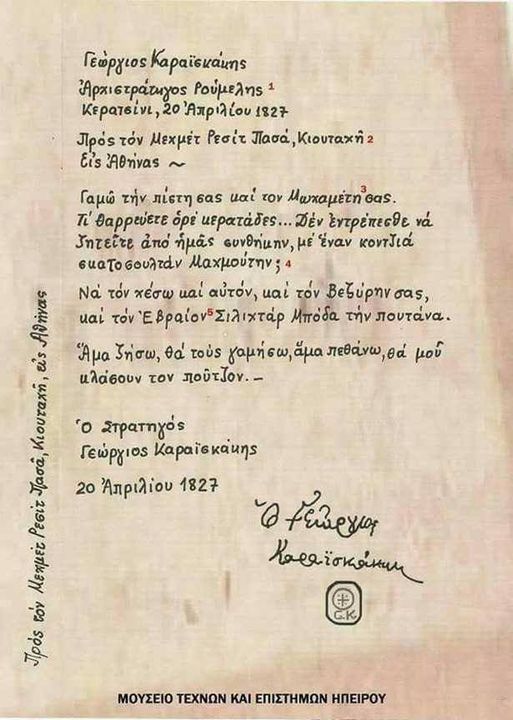 Γεώργιος Καραϊσκάκης
Ἀρχιστράτηγος Ρούμελης 1
Κερατσίνι, 20 Ἀπριλίου 1827
Πρός τόν Μεχμέτ Ρεσίτ Πασά, Κιουταχῆ 2
Εἰς Ἀθήνας ~
Γαμῶ τήν πίστη σας καί τον Μωχαμέτη 3 σας.
Τί θαρρεύετε ὁρέ κερατάδες... Δέν ἐντρέπεσθε νά
ζητεῖτε ἀπό ἡμᾶς συνθήκην, μέ ἕναν κοντζιά
σκατοσουλτάν Μαχμούτην; 4
Νά τόν χέσω καί αὐτόν, καί τόν Βεζύρην σας,
καί τόν Ἑβραίον 5 Σιλιχτάρ Μπόδα τήν πουτάνα.
Ἅμα ζήσω, θά τούς γαμήσω, ἅμα πεθάνω, θά μοῦ
κλάσουν τον ποῦτζον. –
Ὁ Στρατηγός
Γεώργιος Καραϊσκάκης
20 Ἀπριλίου 1827
Ὁ Γεώργιος
Καραϊσκάκης
G.K.
Πρός τόν Μεχμέτ Ρεσίτ Πασά, Κιουταχῆ, εἰς Ἀθήνας
ΜΟΥΣΕΙΟ ΤΕΧΝΩΝ ΚΑΙ ΕΠΙΣΤΗΜΩΝ ΗΠΕΙΡΟΥ